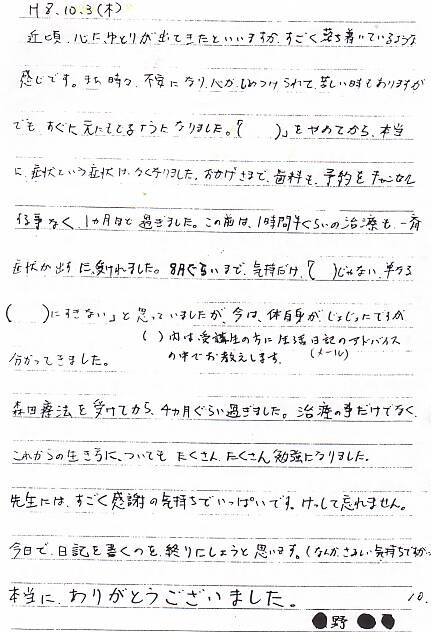 H8.10.3(木)
近頃、心に、ゆとりが出てきたといいますか、すごく落ち着いているような
感じです。また、時々、不安になり、心が、しめつけられて、苦しい時もありますが
でも、すぐに、元にもどるようになりました。「(　　)」をやめてから、本当
に、症状という症状は、なくなりました。おかげさまで、歯科も、予約をキャンセル
する事なく、1カ月ほど過ぎました。この前は、1時間半ぐらいの治療も、一斉
症状が出ずに、受けれました。8月ぐらいまで、気持だけ、「(　　)じゃない、単なる
(　　)にすぎない」と思っていましたが、今は、体自身が、じょじょにですが
分かってきました。
(　)内は受講生の方に生活日記のアドバイス(メール)
の中でお教えします。
森田療法を受けてから、4カ月ぐらい過ぎました。治療の事だけでなく、
これからの生き方に、ついても たくさん、たくさん勉強になりました。
先生には、すごく感謝の気持ちでいっぱいです。けっして忘れません。
今日で、日記を書くのを、終りにしようと思います。(なんか、さみしい気持ちですが
本当に、ありがとうございました。 10.
野